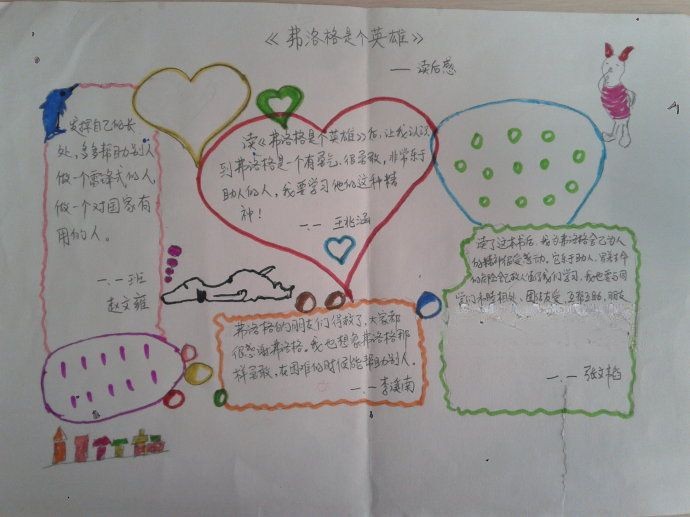 《弗洛格是个英雄》
——读后感
发挥自己的长
处，多多帮助别人
做一个雷锋式的人，
做一个对国家有
用的人。
一.一班
赵文雍
读《弗洛格是个英雄》后，让我认识
到弗洛格是一个有勇气、很勇敢，非常乐于
助人的人，我要学习他的这种精
神！
一.一 王兆涵
弗洛格的朋友们得救了，大家都
很感谢弗洛格。我也想象弗洛格那
样勇敢，在困难的时候能帮助别人。
一.一 李溪南
读了这本书后，我为弗洛格舍己为人
的精神很受感动。它乐于助人，冒着生命
的危险去救人值得我们学习，我也要与同
学们和睦相处、团结友爱、互帮互助
一.一 张文韬